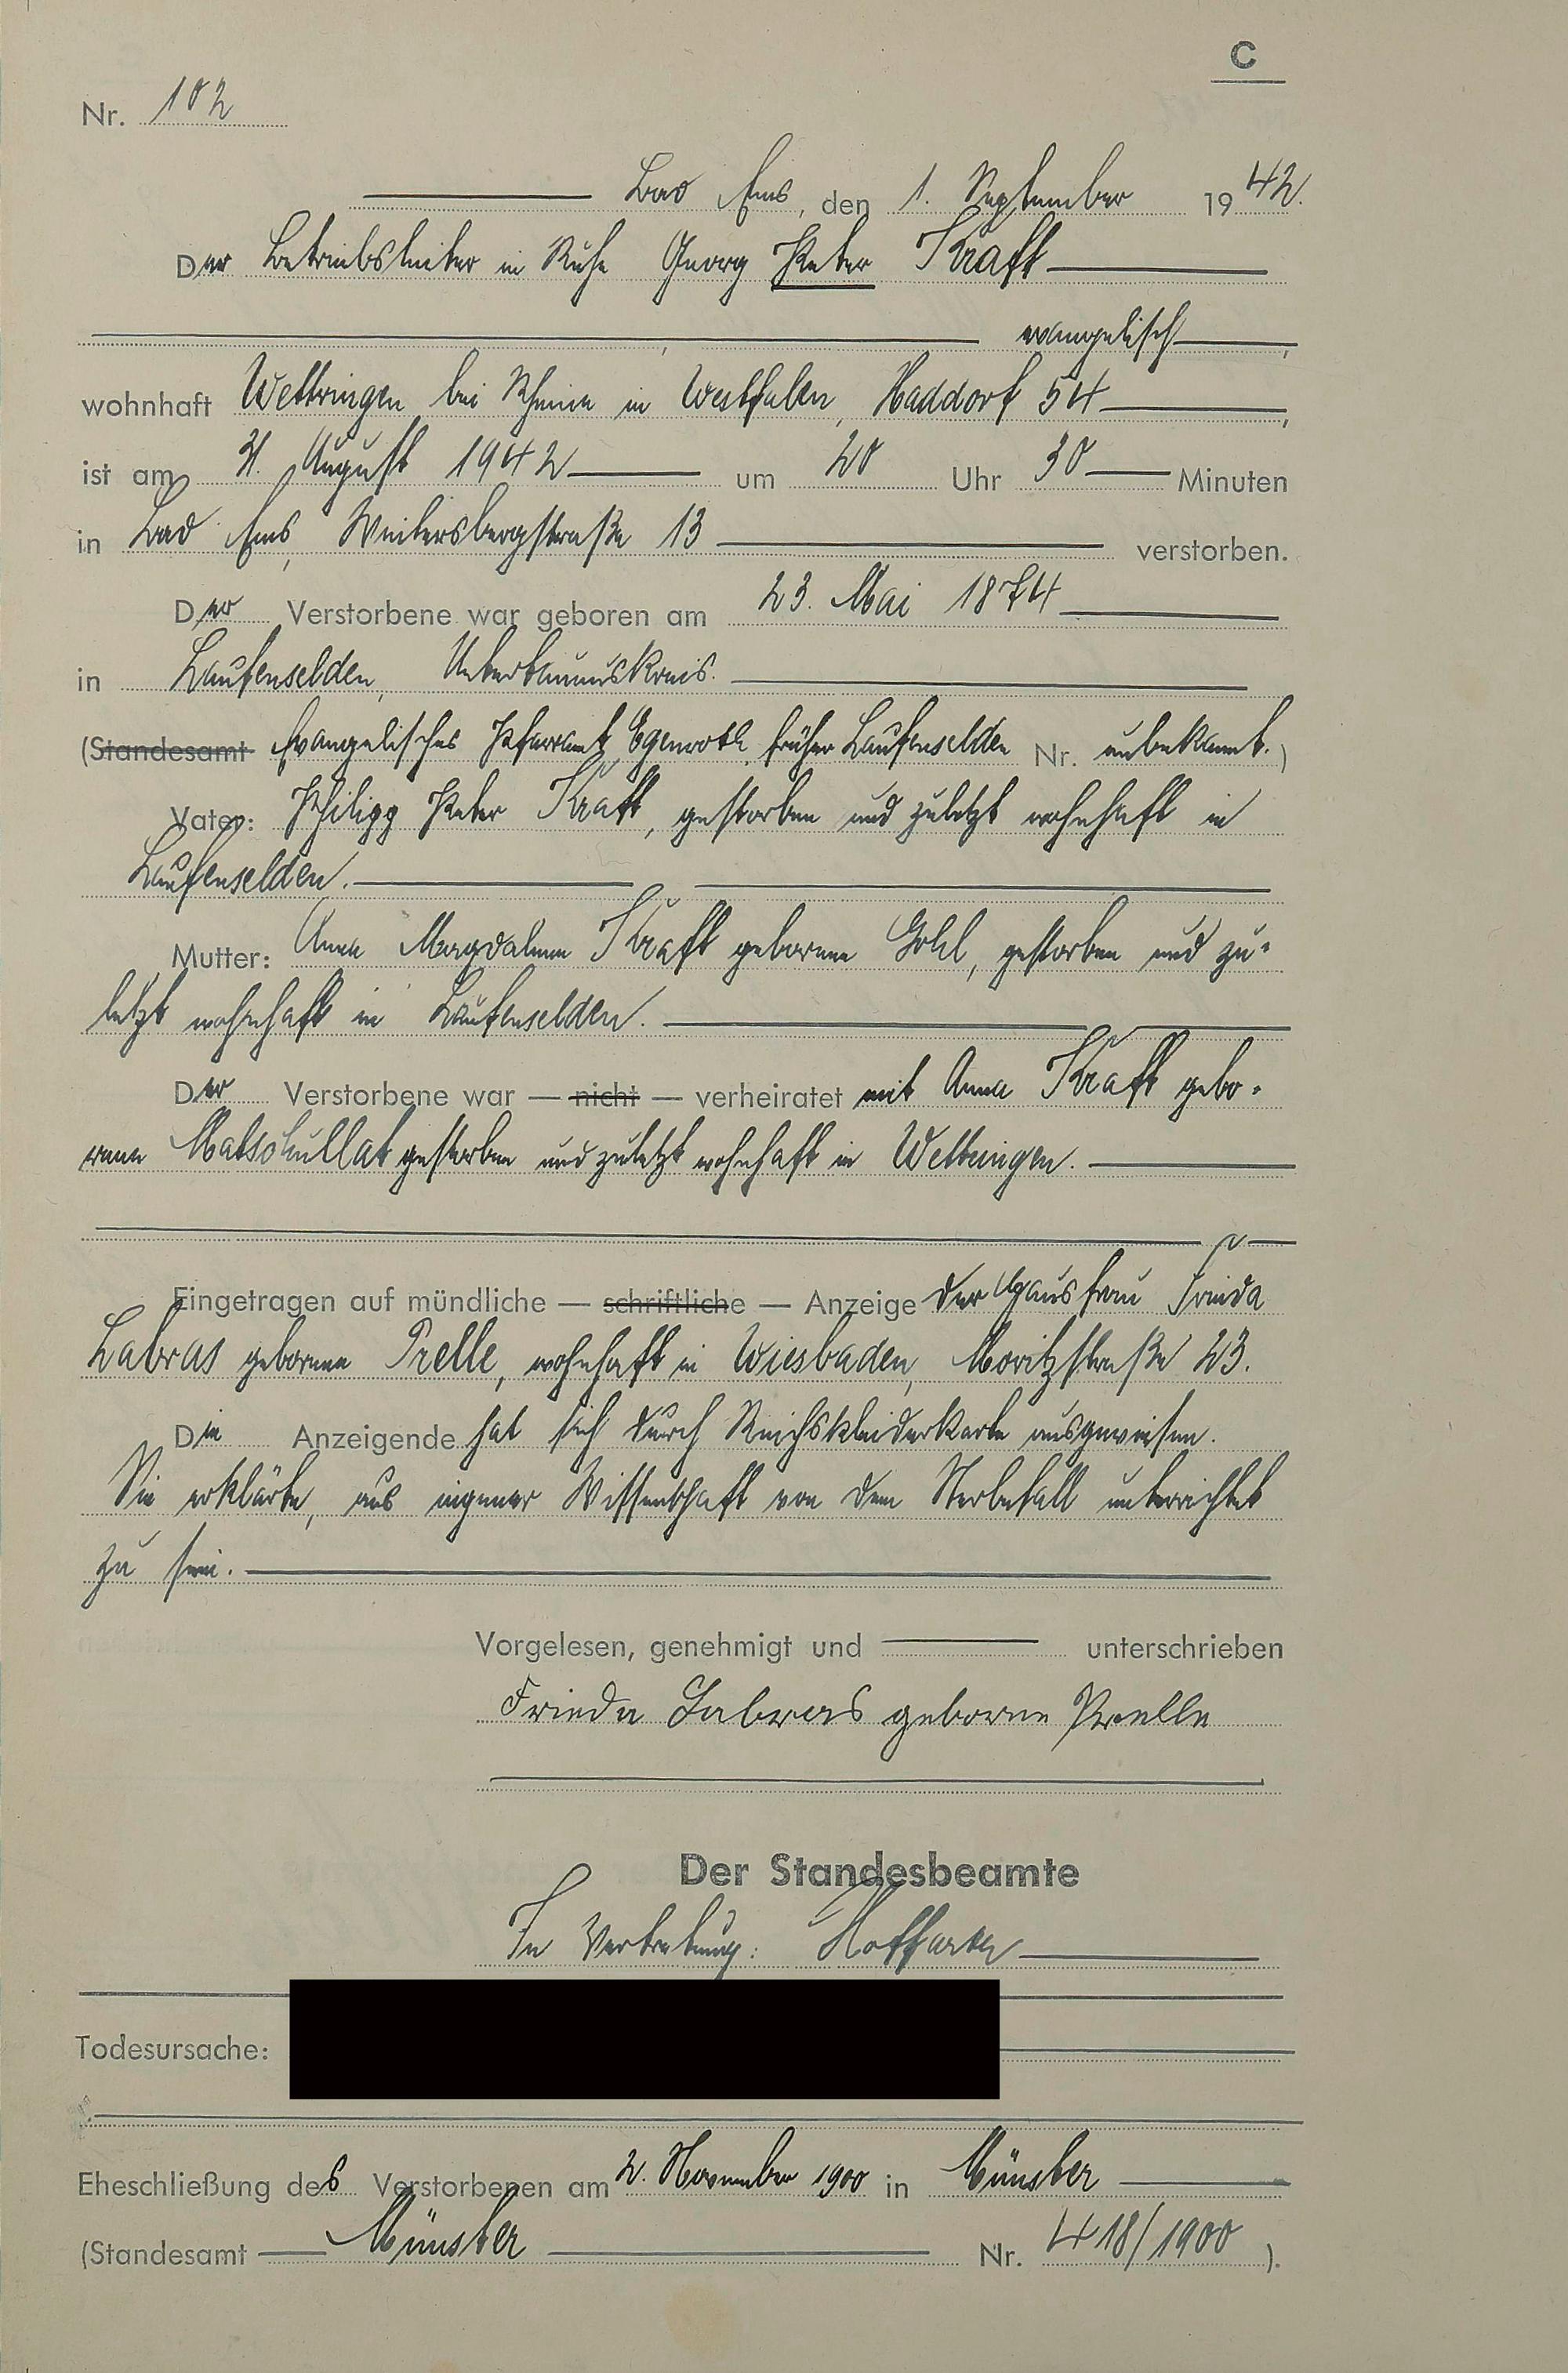 C
Nr. 102
Bad Ems, den 1. September 1942.
Der Betriebsleiter in Ruhe Georg Peter Kraft
evangelisch,
wohnhaft Wettringen bei Rheine in Westfalen, Haddorf 54,
ist am 31. August 1942 um 20 Uhr 30 Minuten
in Bad Ems, Wintersbergstraße 13 verstorben.
Der Verstorbene war geboren am 23. Mai 1874
in Laufenselden, Untertaunuskreis.
(Standesamt Evangelisches Pfarramt Egenroth, früher Laufenselden Nr. unbekannt.)
Vater: Philipp Peter Kraft, gestorben und zuletzt wohnhaft in
Laufenselden.
Mutter: Anna Magdalena Kraft geborene Gohl, gestorben und zu-
letzt wohnhaft in Laufenselden.
Der Verstorbene war — nicht — verheiratet mit Anna Kraft gebo-
rene Matschullat gestorben und zuletzt wohnhaft in Wettringen.
Eingetragen auf mündliche — schriftliche — Anzeige der Hausfrau Frieda
Labras geborene Prelle, wohnhaft in Wiesbaden, Moritzstraße 23.
Die Anzeigende hat sich durch Reichskleiderkarte ausgewiesen.
Sie erklärte, aus eigener Wissenschaft von dem Sterbefall unterrichtet
zu sein.
Vorgelesen, genehmigt und unterschrieben
Frieda Labras geborene Prelle
Der Standesbeamte
In Vertretung:
Todesursache:
Eheschließung des Verstorbenen am 2. November 1900 in Münster
(Standesamt Münster Nr. 418/1900).